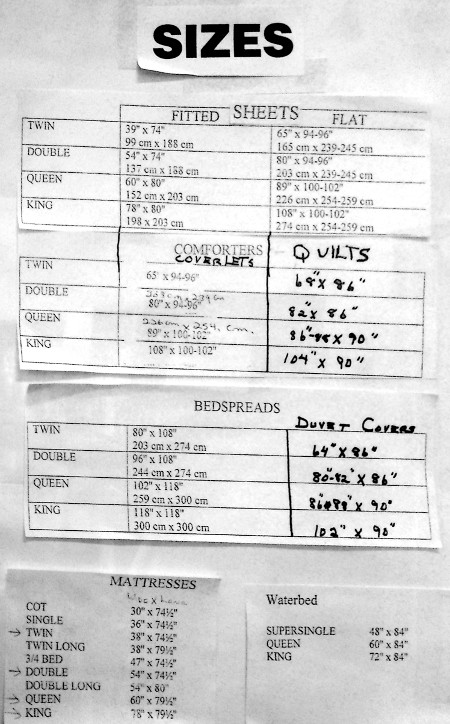 SIZES
SHEETS
FITTED FLAT
TWIN 39" x 74" 65" x 94-96"
99 cm x 188 cm 165 cm x 239-245 cm
DOUBLE 54" x 74" 80" x 94-96"
137 cm x 188 cm 203 cm x 239-245 cm
QUEEN 60" x 80" 89" x 100-102"
152 cm x 203 cm 226 cm x 254-259 cm
KING 78" x 80" 108" x 100-102"
198 x 203 cm 274 cm x 254-259 cm
COMFORTERS QUILTS
COVERLETS
TWIN 65" x 94-96" 68" x 86"
DOUBLE 80" x 94-96" 82" x 86"
QUEEN 226cm x 254. cm.
89" x 100-102" 86"-88 x 90"
KING 108" x 100-102" 104" x 90"
BEDSPREADS
DUVET COVERS
TWIN 80" x 108" 64" X 86"
203 cm x 274 cm
DOUBLE 96" x 108" 80"-82" X 86"
244 cm x 274 cm
QUEEN 102" x 118" X 90"
259 cm x 300 cm
KING 118" x 118" 102" X 90"
300 cm x 300 cm
MATTRESSES
COT 30" x 74½"
SINGLE 36" x 74½"
→ TWIN 38" x 74½"
TWIN LONG 38" x 79½"
3/4 BED 47" x 74½"
→ DOUBLE 54" x 74½"
DOUBLE LONG 54" x 80"
→ QUEEN 60" x 79½"
→ KING 78" x 79½"
Waterbed
SUPERSINGLE 48" x 84"
QUEEN 60" x 84"
KING 72" x 84"